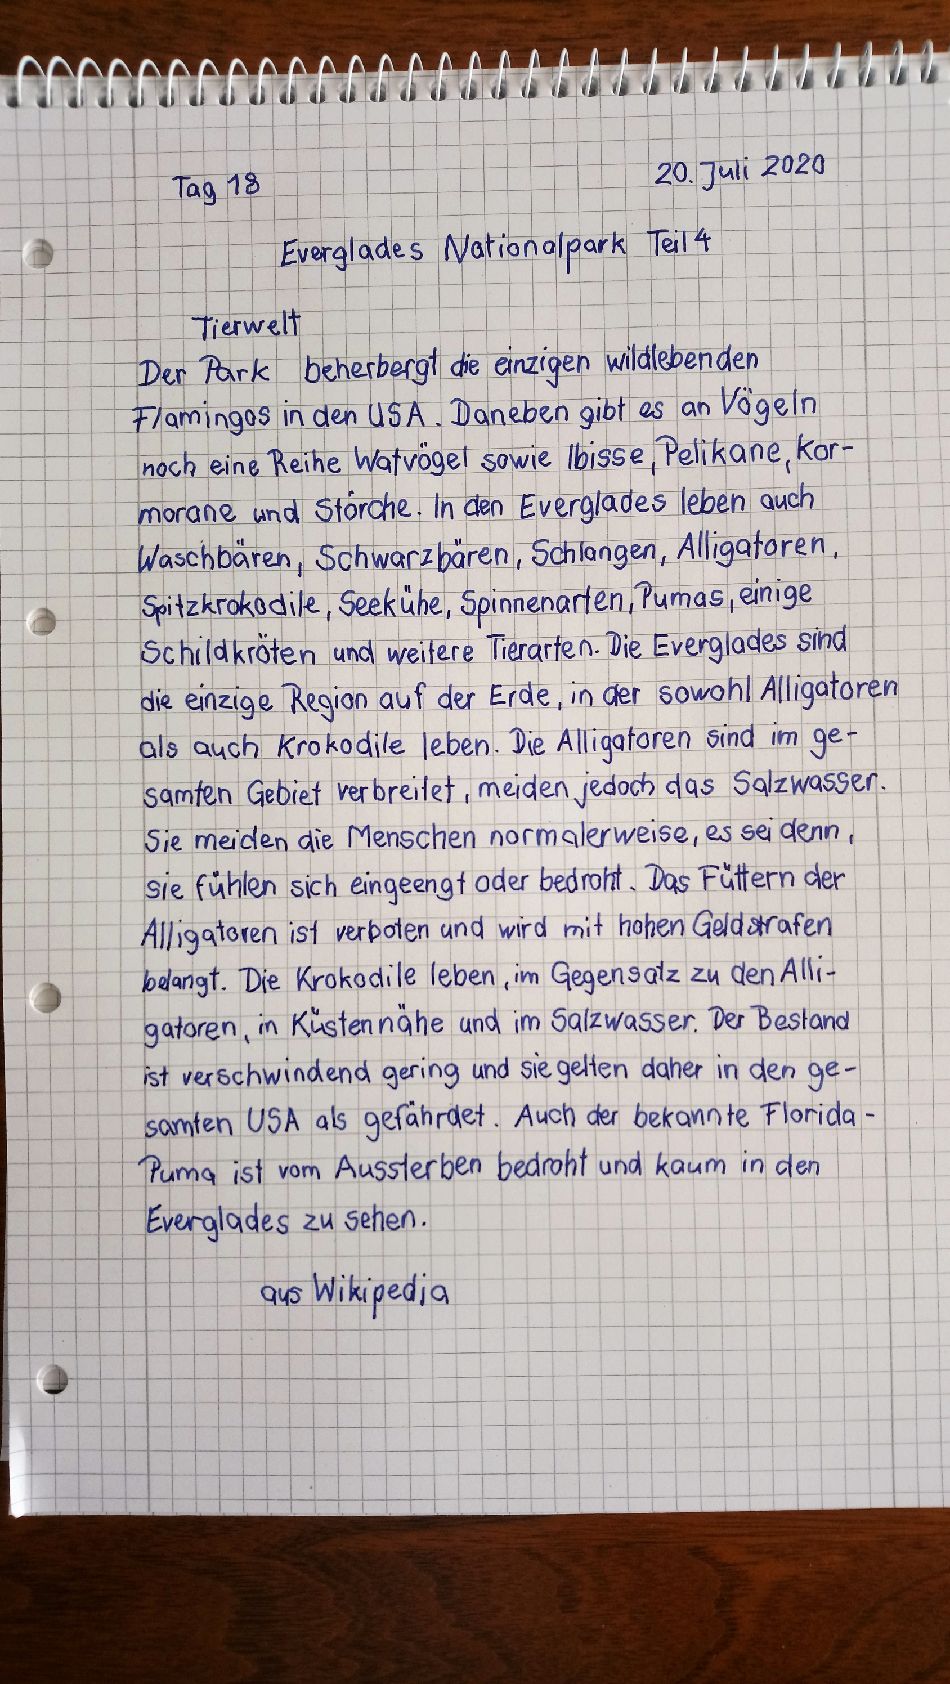 Tag 18
20. Juli 2020
Everglades Nationalpark Teil 4
Tierwelt
Der Park beherbergt die einzigen wildlebenden
Flamingos in den USA. Daneben gibt es an Vögeln
noch eine Reihe Watvögel sowie Ibisse, Pelikane, Kor-
morane und Störche. In den Everglades leben auch
Waschbären, Schwarzbären, Schlangen, Alligatoren,
Spitzkrokodile, Seekühe, Spinnenarten, Pumas, einige
Schildkröten und weitere Tierarten. Die Everglades sind
die einzige Region auf der Erde, in der sowohl Alligatoren
als auch Krokodile leben. Die Alligatoren sind im ge-
samten Gebiet verbreitet, meiden jedoch das Salzwasser.
Sie meiden die Menschen normalerweise, es sei denn,
sie fühlen sich eingeengt oder bedroht. Das Füttern der
Alligatoren ist verboten und wird mit hohen Geldstrafen
belangt. Die Krokodile leben, im Gegensatz zu den Alli-
gatoren, in Küstennähe und im Salzwasser. Der Bestand
ist verschwindend gering und sie gelten daher in den ge-
samten USA als gefährdet. Auch der bekannte Florida-
Puma ist vom Aussterben bedroht und kaum in den
Everglades zu sehen.
aus Wikipedia